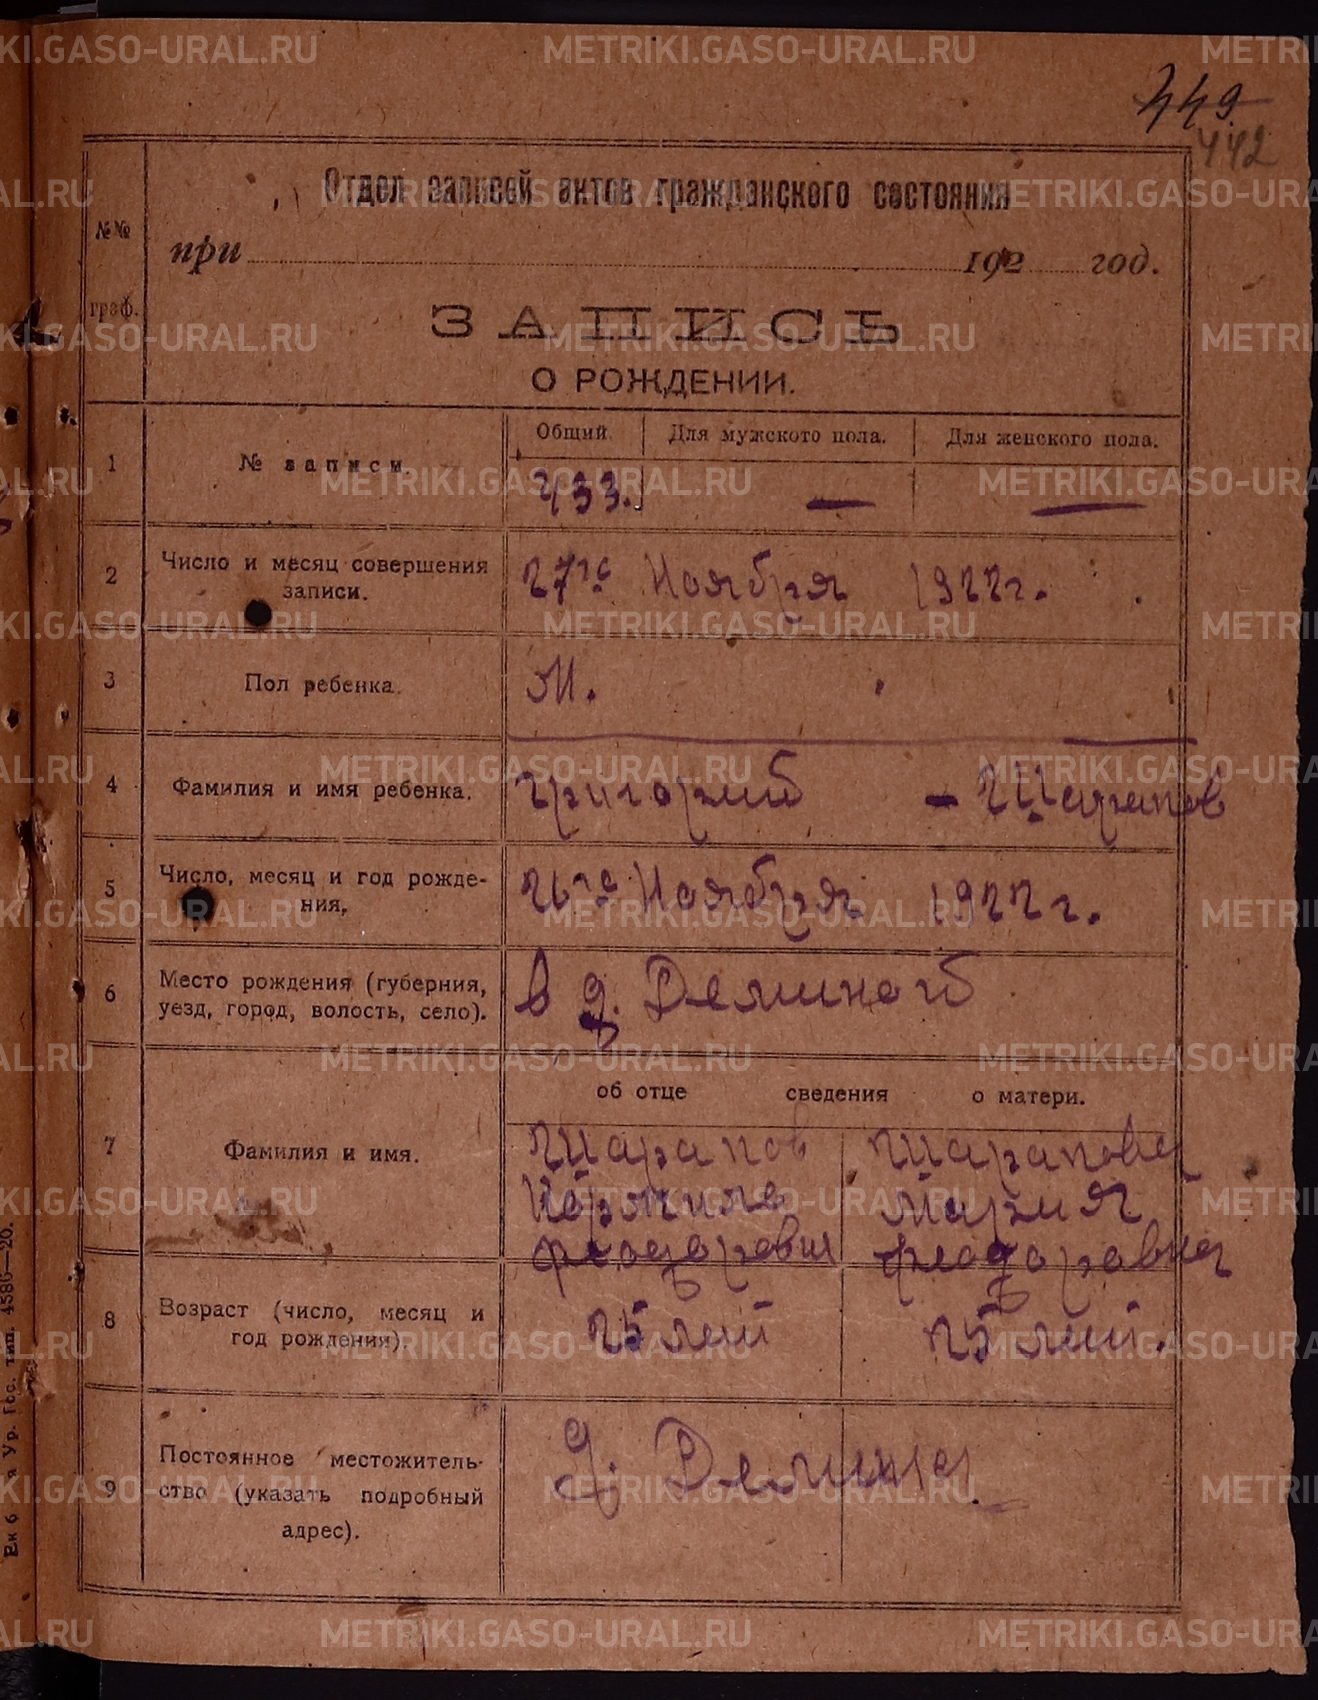 449
442
№№ граф.
Отдел записей актов гражданского состояния
при 192 год.
ЗАПИСЬ
О РОЖДЕНИИ.
1
№ записи.
Общий.
Для мужского пола.
Для женского пола.
433.
—
—
2
Число и месяц совершения
записи.
27го Ноября 1922г.
3
Пол ребенка.
М.
4
Фамилия и имя ребенка.
Григорий – Шарапов
5
Число, месяц и год рожде-
ния.
26го Ноября 1922г.
6
Место рождения (губерния,
уезд, город, волость, село).
в д. Деминой
об отце сведения о матери.
7
Фамилия и имя.
Шарапов
Кормила
Феодорович
Шарапова
Мария
Феодоровна
8
Возраст (число, месяц и
год рождения).
25 лет
25 лет.
9
Постоянное местожитель-
ство (указать подробный
адрес).
Д. Демина
Гос. тип. 4586—20.
METRIKI.GASO-URAL.RU